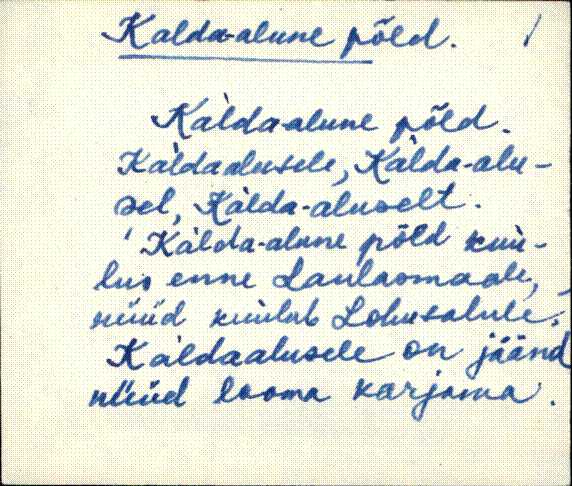 Kalda-alune põld. /
Kàldaalune põld.
Kàldaalusele, Kàlda-alu-
sel, Kàlda-aluselt.
Kàlda-alune põld kuu-
lus enne Laulasmaale,
nüüd kuulub Lohusalule.
Kàldaalusele on jäänd
nüüd looma karjama.